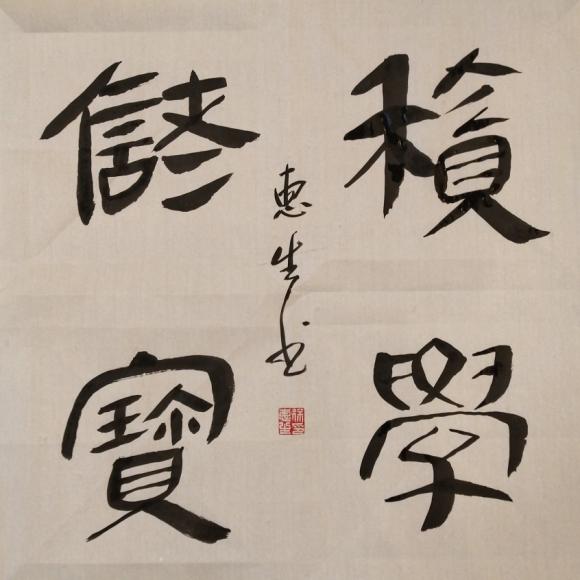 積學
儲寶
惠生书